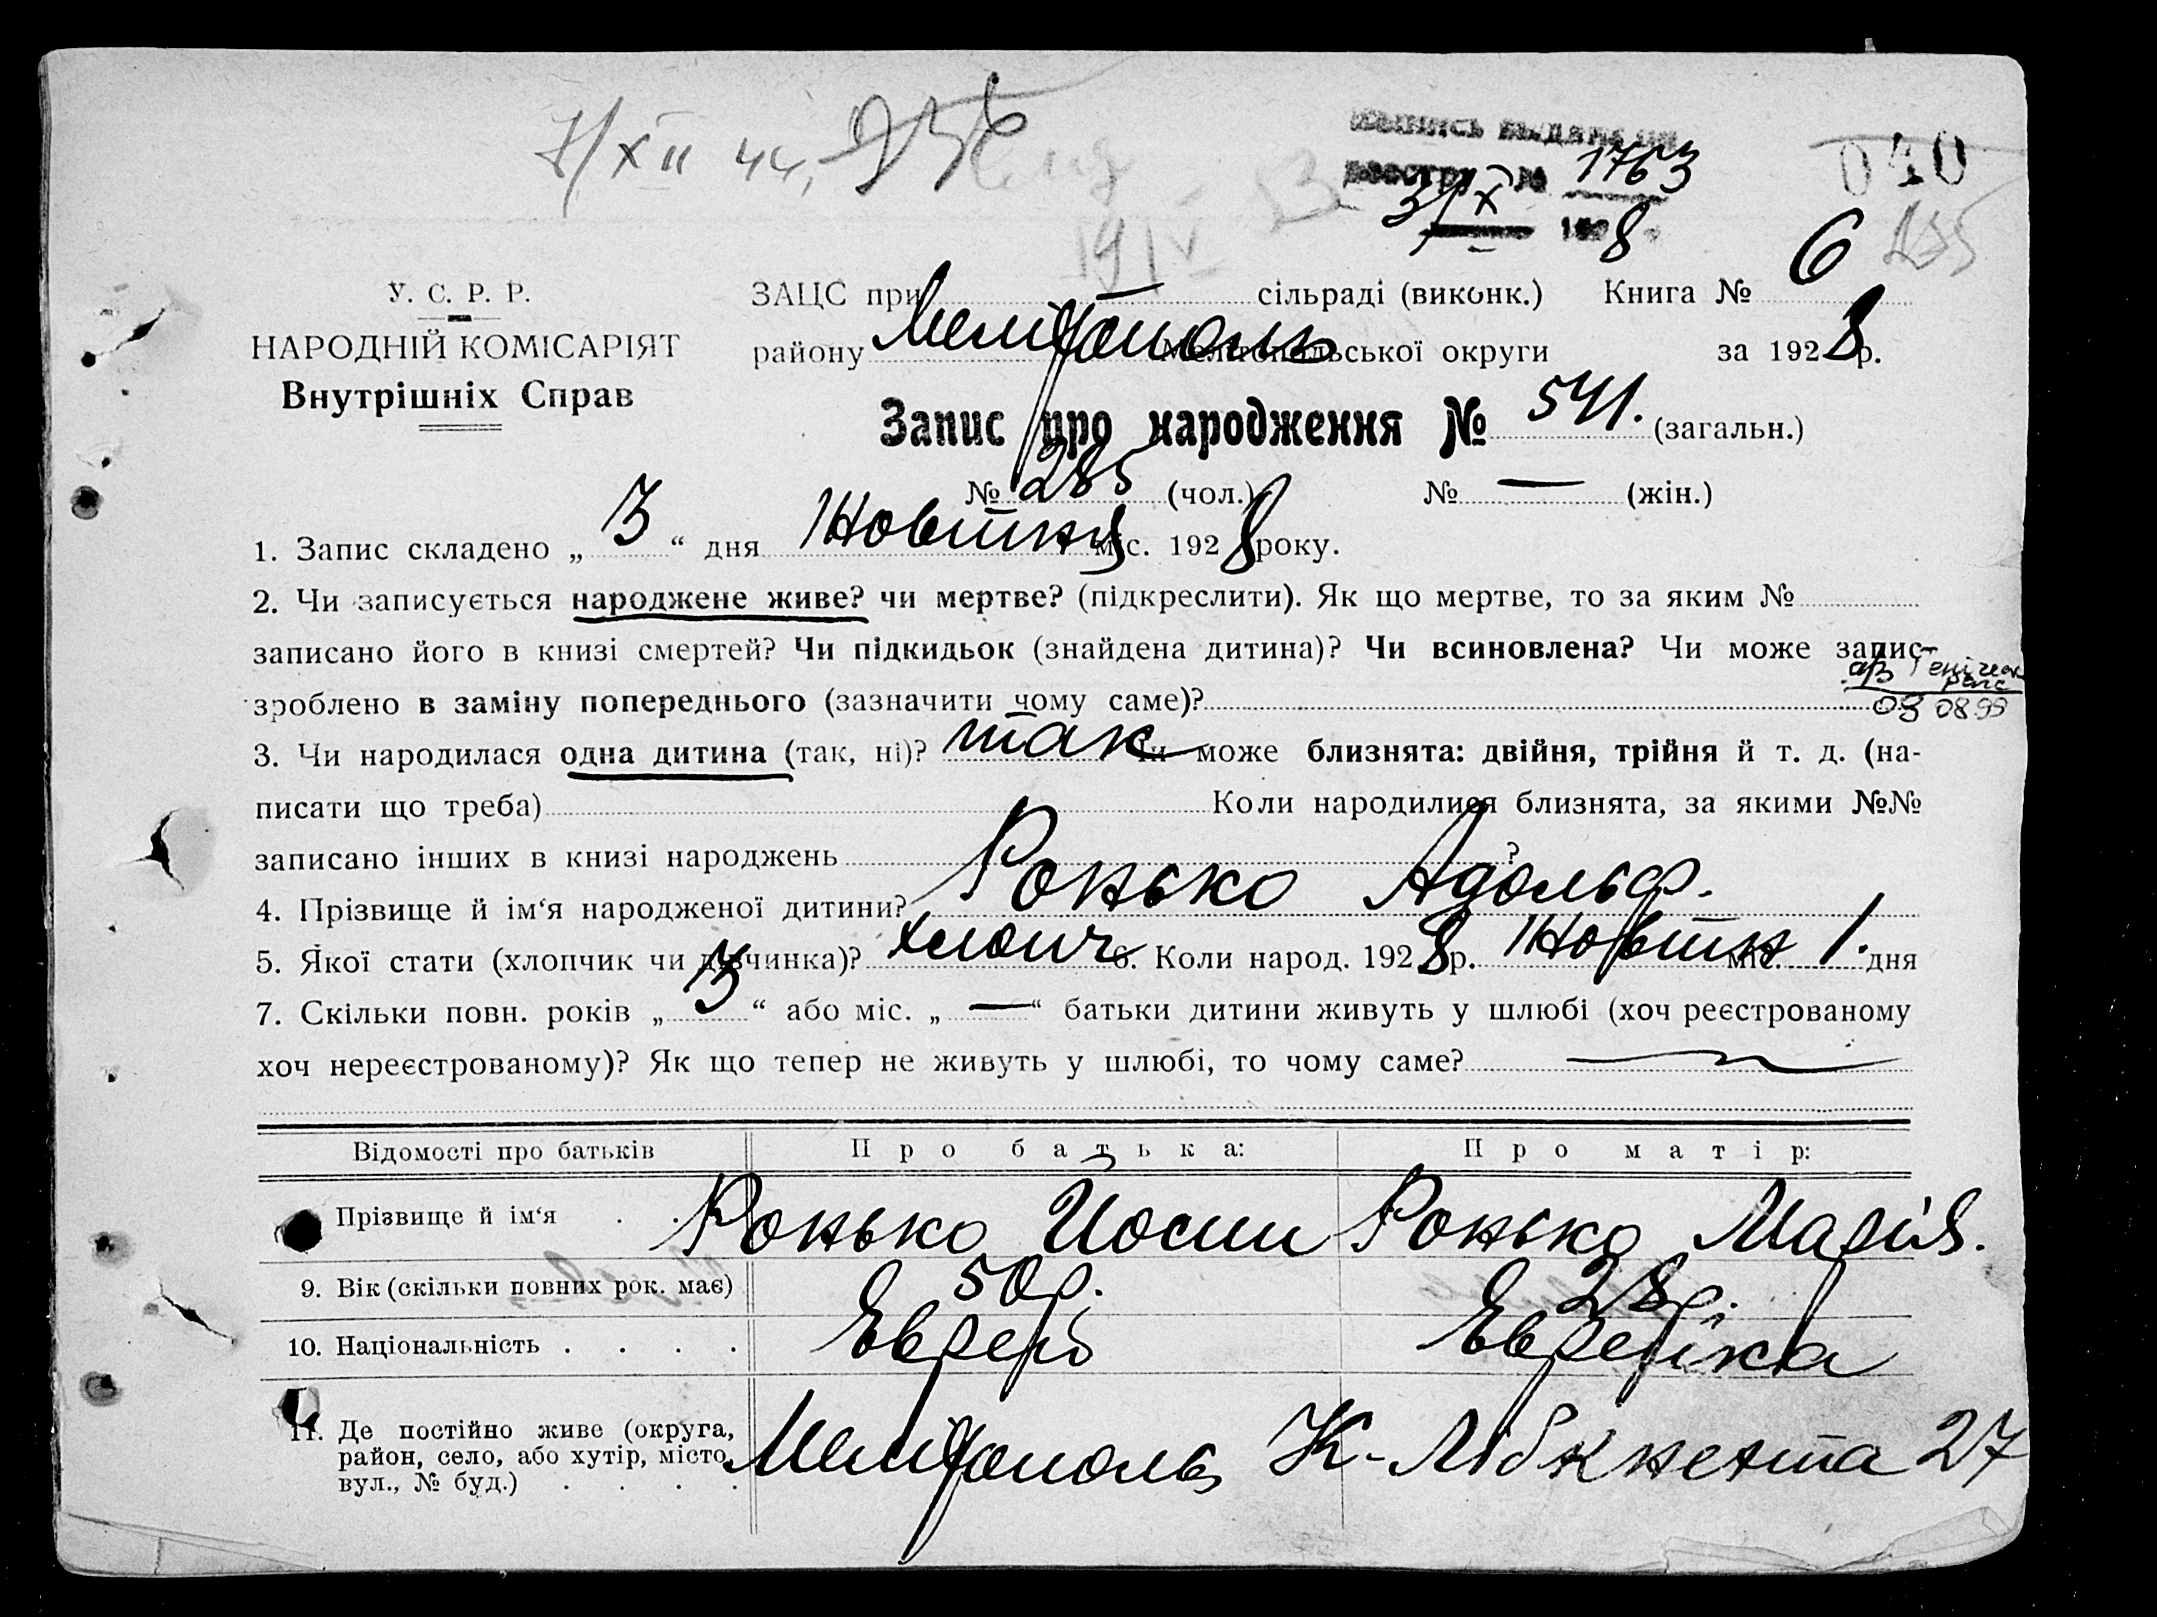 7/XII 44,
Выпись выдана по
реестру № 1763
31/X 1928
040
У. С. Р. Р.
НАРОДНІЙ КОМІСАРІЯТ
Внутрішніх Справ
ЗАЦС при — сільраді (виконк.) Книга № 6
району Мелітополь Мелітопольської округи за 1928 р.
Запис про народження № 541. (загальн.)
№ 285 (чол.) № — (жін.)
1. Запис складено „ 3 “ дня Жовтня міс. 1928 року.
2. Чи записується народжене живе? чи мертве? (підкреслити). Як що мертве, то за яким №
записано його в книзі смертей? Чи підкидьок (знайдена дитина)? Чи всиновлена? Чи може запис
зроблено в заміну попереднього (зазначити чому саме)?
03 08 99
3. Чи народилася одна дитина (так, ні)? так Чи може близнята: двійня, трійня й т. д. (на-
писати що треба) Коли народилися близнята, за якими №№
записано інших в книзі народжень ?
4. Прізвище й ім‘я народженої дитини? Ронько Адольф.
5. Якої стати (хлопчик чи дівчинка)? хлопч 6. Коли народ. 1928 р. Жовтн міс. 1. дня
7. Скільки повн. років „ 3 “ або міс. „ — “ батьки дитини живуть у шлюбі (хоч реєстрованому
хоч нереєстрованому)? Як що тепер не живуть у шлюбі, то чому саме? —
Відомості про батьків Про батька: Про матір:
Прізвище й ім‘я . . Ронько Йосип Ронько Марія.
9. Вік (скільки повних рок. має) 50 р. 28 р.
10. Національність . . . . Еврей Еврейка
11. Де постійно живе (округа,
район, село, або хутір, місто,
вул., № буд.) . . . . Мелітополь К-Лібкнехта 27